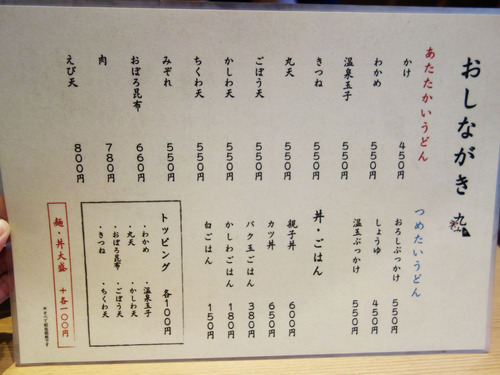 おしながき
あたたかいうどん
かけ 450円
わかめ 550円
温泉玉子 550円
きつね 550円
丸天 550円
ごぼう天 550円
かしわ天 550円
ちくわ天 550円
みぞれ 550円
おぼろ昆布 660円
肉 780円
えび天 800円
つめたいうどん
おろしぶっかけ 550円
しょうゆ 450円
温玉ぶっかけ 550円
丼・ごはん
親子丼 600円
カツ丼 650円
バク玉ごはん 380円
かしわごはん 180円
白ごはん 150円
トッピング 各100円
・わかめ ・温泉玉子
・丸天 ・かしわ天
・おぼろ昆布 ・ごぼう天
・きつね ・ちくわ天
麺・丼大盛 +各100円